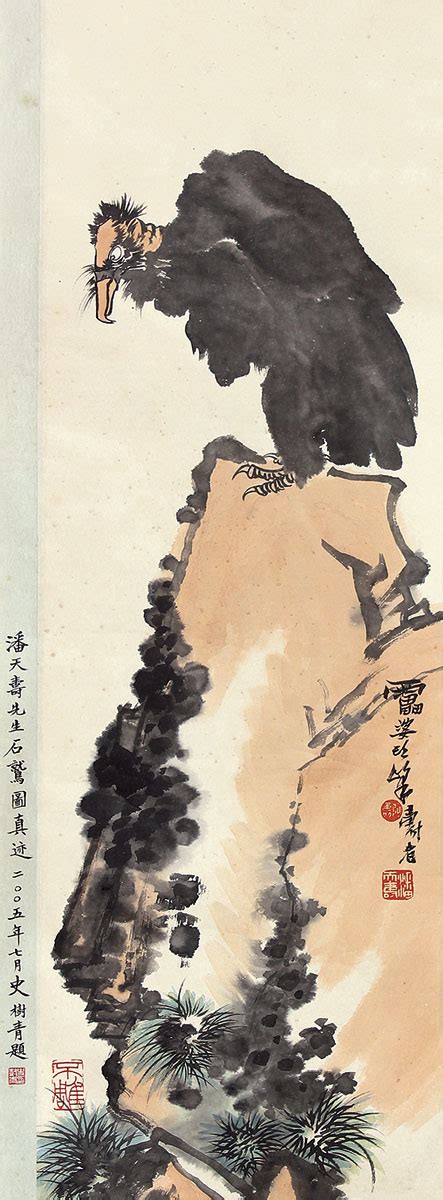 雷婆頭峰壽者
潘天壽先生石鷲圖真迹 二〇〇五年七月 史樹青題
不雕
潘天壽